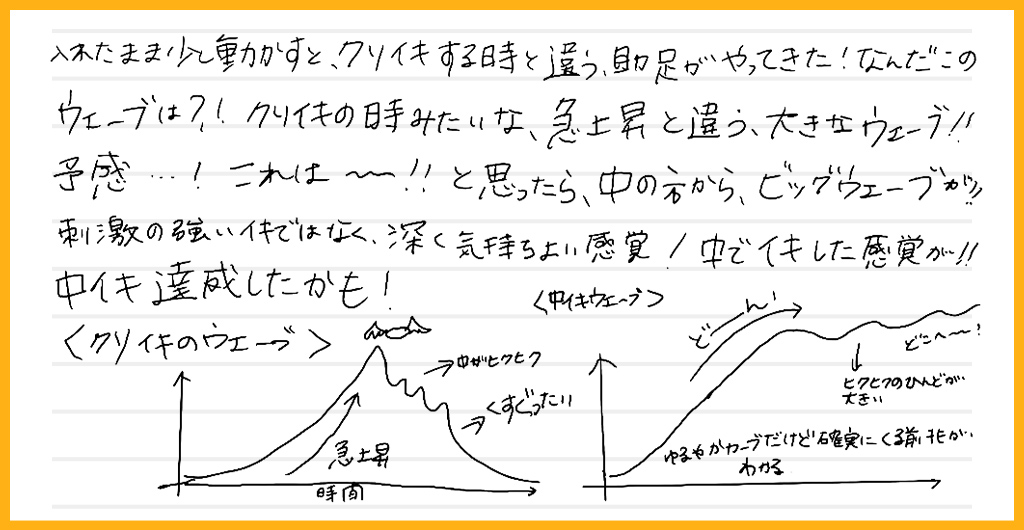 入れたまま少し動かすと、クリイキする時と違う、助走がやってきた！なんだこの
ウェーブは？！クリイキの時みたいな、急上昇と違う、大きなウェーブ！！
予感…！これは〜〜！！と思ったら、中の方から、ビッグウェーブが！！
刺激の強いイキではなく、深く気持ちよい感覚！中でイキした感覚が！！
中イキ達成したかも！
〈クリイキのウェーブ〉
中がヒクヒク
くすぐったい
急上昇
時間
〈中イキウェーブ〉
ど――ん！
どこへ〜〜！
ヒクヒクのひんどが
大きい
ゆるやかカーブだけど確実にくる前兆が
わかる